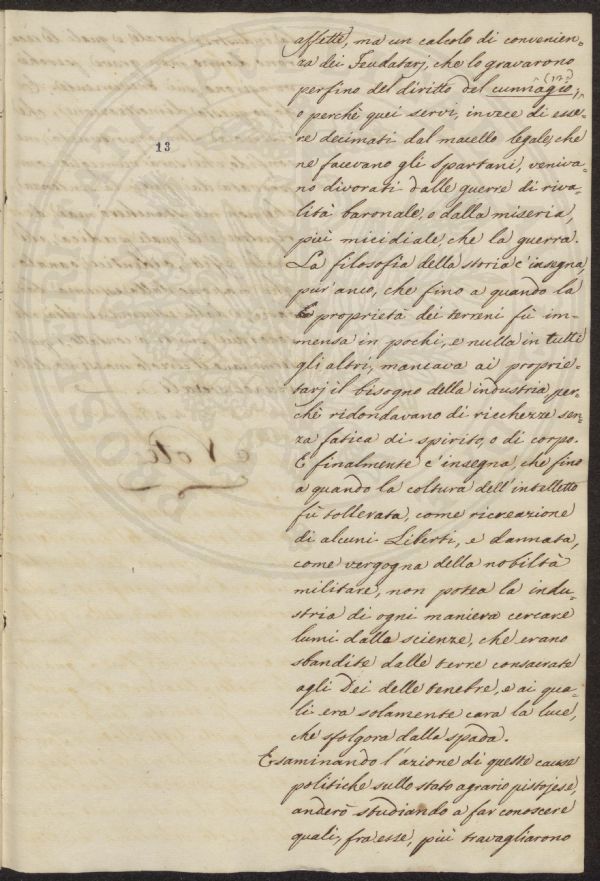 affetti, ma un calcolo di convenien-
za dei Feudatarj, che lo gravarono
perfino del diritto del cunnagio, (12)
o perchè quei servi, invece di esse-
re decimati dal macello legale, che
13
ne facevano gli Spartani, veniva-
no divorati dalle guerre di riva-
lità baronale, o dalla miseria,
più micidiale, che la guerra.
La filosofia della storia c'insegna,
pur'anco, che fino a quando la
proprietà dei terreni fù im-
mensa in pochi, e nulla in tutti
gli altri, mancava ai proprie-
tarj il bisogno della industria per-
chè ridondavano di ricchezze sen-
za fatica di spirito, o di corpo.
Note
E finalmente c'insegna, che fino
a quando la coltura dell'intelletto
fù tollerata, come ricreazione
di alcuni Liberti, e dannata,
come vergogna della nobiltà
militare, non potea la indu-
stria di ogni maniera cercare
lumi dalle scienze, che erano
sbandite dalle terre consacrate
agli Dei delle tenebre, e ai qua-
li era solamente cara la luce,
che sfolgora dalla spada.
Esaminando l'azione di queste cause
politiche sullo stato agrario pistojese,
anderò studiando a far conoscere
quali, fra esse, più travagliarono